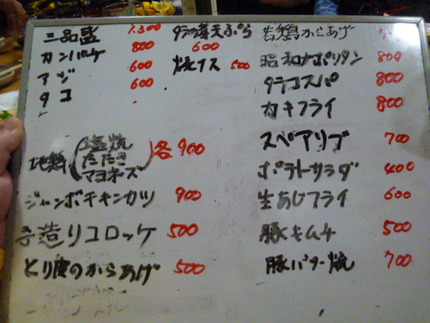 三品盛 1,300
カンパチ 800
アジ 600
タコ
地鶏(塩焼 たたき マヨネーズ)各900
ジャンボチキンカツ 900
手造りコロッケ 500
とり皮のからあげ 500
600
焼ナス 500
若鶏からあげ
昭和ナポリタン 800
タラコスパ 800
カキフライ 800
スペアリブ 700
ポテトサラダ 400
生あじフライ 600
豚キムチ 500
豚バター焼 700